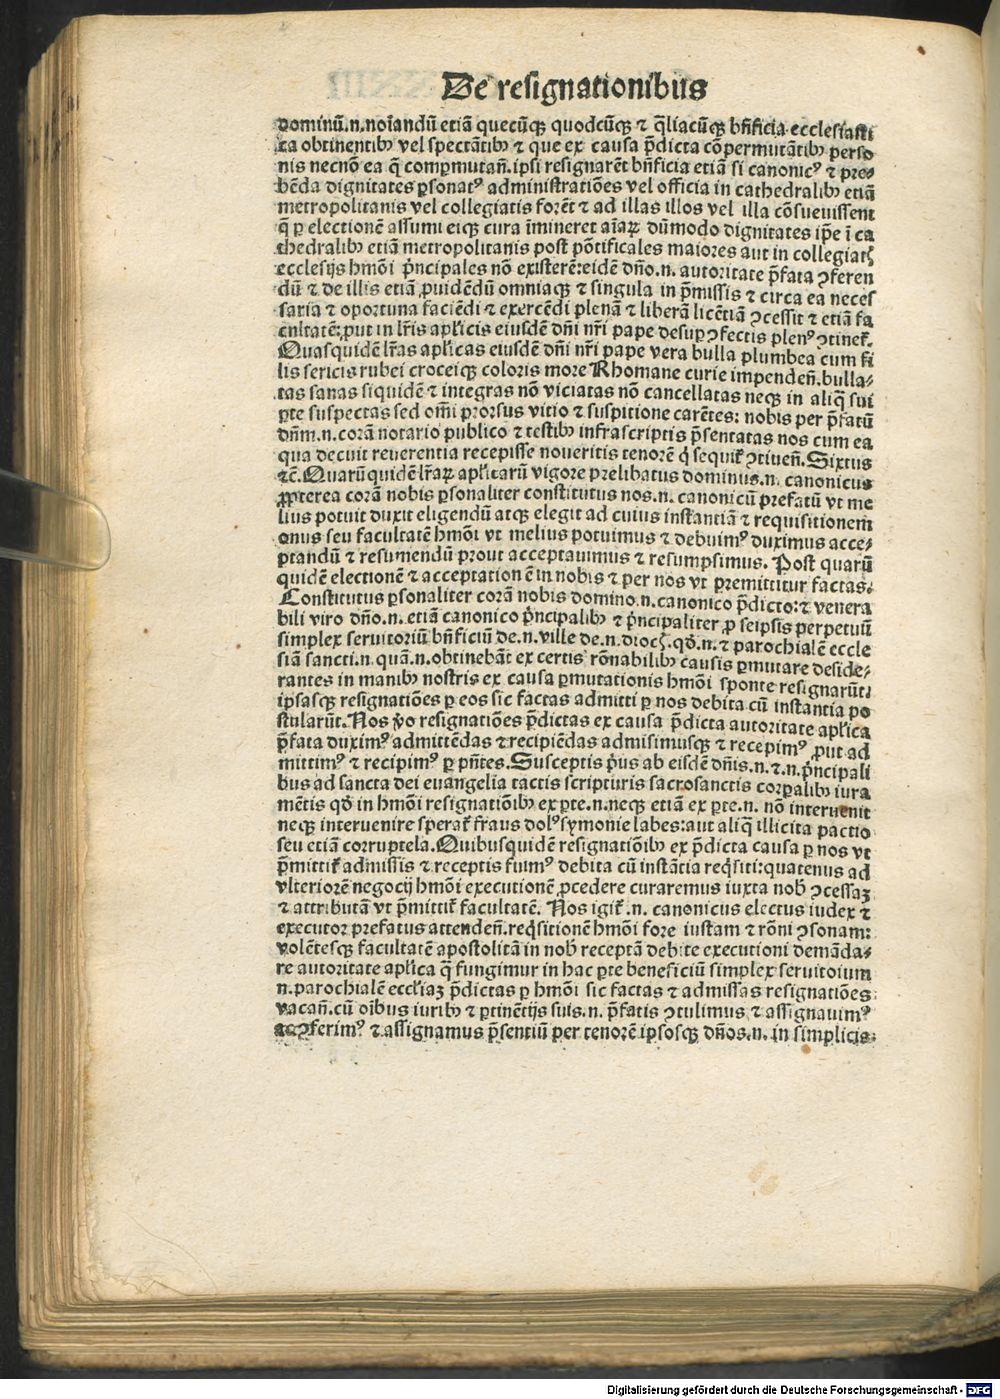 De resignationibus
dominū.n.noīandū etiā quecūqꝫ quodcūqꝫ ⁊ q̄liacūqꝫ bn̄ficia ecclesiasti
ca obtinentibꝰ vel spectātibꝰ ⁊ que ex causa p̄dicta cōpermutātibꝰ perso
nis necnō ea q̄ compmutan̄.ipsi resignarēt bn̄ficia etiā si canonicꝰ ⁊ pre⸗
bēda dignitates ꝑsonatꝰ administratiōes vel officia in cathedralibꝰ etiā
metropolitanis vel collegiatis forēt ⁊ ad illas illos vel illa cōsueuissent
q̄ ꝑ electionē assumi eiqꝫ cura īmineret aīaꝝ dūmodo dignitates ip̄e ī ca
thedralibꝰ etiā metropolitanis post pōtificales maiores aut in collegiatꝭ
ecclesijs hmōi p̄ncipales nō existerē:eidē dn̄o.n. autoritate p̄fata ꝯferen
dū ⁊ de illis etiā ꝓuidēdū omniaqꝫ ⁊ singula in p̄missis ⁊ circa ea neces
saria ⁊ oportuna faciēdi ⁊ exercēdi plenā ⁊ liberā licētiā ꝯcessit ⁊ etiā fa
cultatē:ꝓut in lr̄is apl̄icis eiusdē dn̄i nr̄i pape desuꝑ ꝯfectis plenꝰ ꝯtinet̄.
Quasquidē lr̄as apl̄icas eiusdē dn̄i nr̄i pape vera bulla plumbea cum fi
lis sericis rubei croceiqꝫ coloris more Rhomane curie impenden̄.bulla⸗
tas sanas siquidē ⁊ integras nō viciatas nō cancellatas neqꝫ in aliq̄ sui
ꝑte suspectas sed om̄i prorsus vitio ⁊ suspitione carētes: nobis per p̄fatū
dn̄m.n.corā notario publico ⁊ testibꝰ infrascriptis p̄sentatas nos cum ea
qua decuit reuerentia recepisse noueritis tenorē q̄ sequit̄ ꝯtiuen̄.Sixtus
⁊c̄.Quarūquidē lr̄aꝝ apl̄icarū vigore prelibatus dominus.n. canonicus
ꝓpterea corā nobis ꝑsonaliter constitutus nos.n. canonicū prefatū vt me
lius potuit duxit eligendū atqꝫ elegit ad cuius instantiā ⁊ requisitionem
onus seu facultatē hmōi vt melius potuimus ⁊ debuimꝰ duximus acce⸗
ptandū ⁊ resumendū prout acceptauimus ⁊ resumpsimus. Post quarū
quidē electionē ⁊ acceptationē in nobis ⁊ per nos vt premittitur factas.
Constitutus ꝑsonaliter corā nobis domino.n.canonico p̄dicto:⁊ venera
bili viro dn̄o.n.etiā canonico p̄ncipalibꝰ ⁊ p̄ncipaliter ꝓ seipsis perpetuū
simplex seruitoriū bn̄ficiū de.n.ville de.n.dioc̄.qd̄.n.⁊ parochialē eccle
siā sancti.n quā.n.obtinebāt ex certis rōnabilibꝰ causis ꝑmutare deside⸗
rantes in manibꝰ nostris ex causa ꝑmutationis hmōi sponte resignarūt.
ipsasqꝫ resignatiōes ꝑ eos sic factas admitti ꝑ nos debita cū instantia po
stularūt.Nos ꝟo resignatiōes p̄dictas ex causa p̄dicta autoritate apl̄ica
p̄fata duximꝰ admittēdas ⁊ recipiēdas admisimusqꝫ ⁊ recepimꝰ ꝓut ad
mittimꝰ ⁊ recipimꝰ ꝑ pn̄tes.Susceptis p̄us ab eisdē dn̄is.n.⁊.n.p̄ncipali
bus ad sancta dei euangelia tactis scripturis sacrosanctis corꝑalibꝰ iura
mētis qd̄ in hmōi resignatiōibꝰ ex ꝑte.n.neqꝫ etiā ex ꝑte.n. nō interuenit
neqꝫ interuenire sperat̄ fraus dolꝰ symonie labes:aut aliq̄ illicita pactio
seu etiā corruptela.Quibusquidē resignatiōibꝰ ex p̄dicta causa ꝑ nos vt
p̄mittit̄ admissis ⁊ receptis fuimꝰ debita cū instātia req̄siti:quatenus ad
vlteriorē negocij hmōi executionē ꝓcedere curaremus iuxta nob̄ ꝯcessaꝫ
⁊ attributā vt p̄mittit̄ facultatē. Nos igit̄ .n. canonicus electus iudex ⁊
executor prefatus attenden̄.req̄sitionē hmōi fore iustam ⁊ rōni ꝯsonam:
volētesqꝫ facultatē apostolicā in nob̄ receptā debite executioni demāda⸗
re autoritate apl̄ica q̄ fungimur in hac ꝑte beneficiū simplex seruitoium
n.parochialē eccl̄iaꝫ p̄dictas ꝑ hmōi sic factas ⁊ admissas resignatiōes
vacan̄.cū oībus iuribꝰ ⁊ ꝑtinētijs suis.n. p̄fatis ꝯtulimus ⁊ assignauimꝰ
ac ꝯferimꝰ ⁊ assignamus p̄sentiū per tenorē ipsosqꝫ dn̄os.n. in simplicis
Digitalisierung gefördert durch die Deutsche Forschungsgemeinschaft - DFG